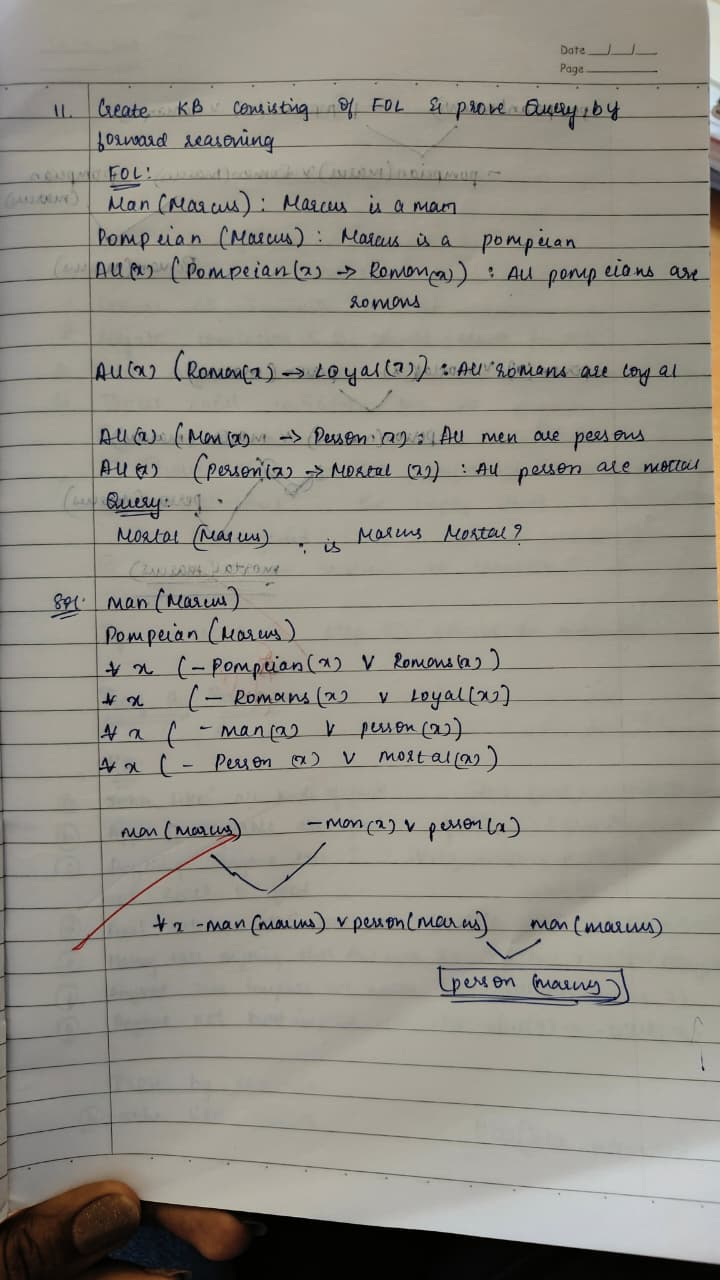 Date __/__/__
Page
11. Create KB consisting of FOL & prove Query, by
forward reasoning
FOL:
Man (Marcus) : Marcus is a man
Pompeian (Marcus) : Marcus is a pompeian
All(x) (Pompeian(x) → Roman(x)) : All pompeians are
romans
All(x) (Roman(x) → Loyal(x)) : All romans are loyal
All(x) (Man(x) → Person(x)) : All men are persons
All(x) (Person(x) → Mortal (x)) : All person are mortal
Query:
Mortal (Marcus) : is Marcus Mortal?
Sol: man (Marcus)
Pompeian (Marcus)
∀ x (– Pompeian(x) V Romans(x))
∀ x (– Romans(x) v Loyal(x)]
∀ x ( – man(x) v person(x))
∀ x ( – Person (x) v mortal(x))
man (marcus) – man(x) v person(x)
∀ x – man(marcus) v person(marcus) man(marcus)
[person (marcus)]